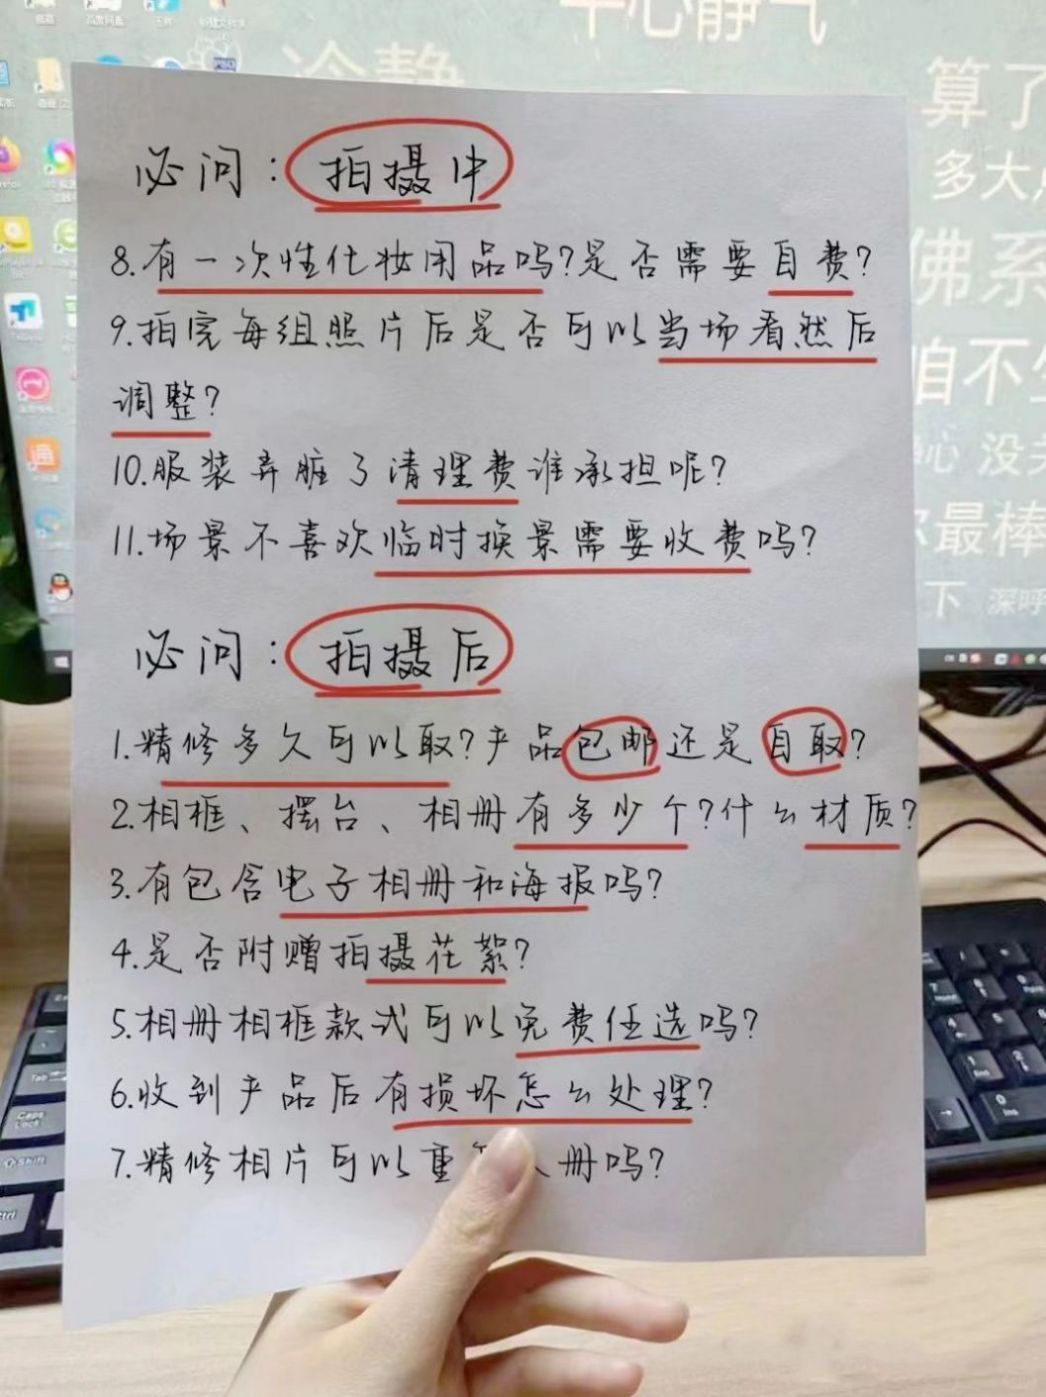 平心静气
冷静
算了
多大
佛系
咱不
心 没
最棒
下 深呼
必问：拍摄中
8.有一次性化妆用品吗?是否需要自费?
9.拍完每组照片后是否可以当场看然后
调整?
10.服装弄脏了清理费谁承担呢?
11.场景不喜欢临时换景需要收费吗?
必问：拍摄后
1.精修多久可以取?产品包邮还是自取?
2.相框、摆台、相册有多少个?什么材质?
3.有包含电子相册和海报吗?
4.是否附赠拍摄花絮?
5.相册相框款式可以免费任选吗?
6.收到产品后有损坏怎么处理?
7.精修相片可以重 入册吗?